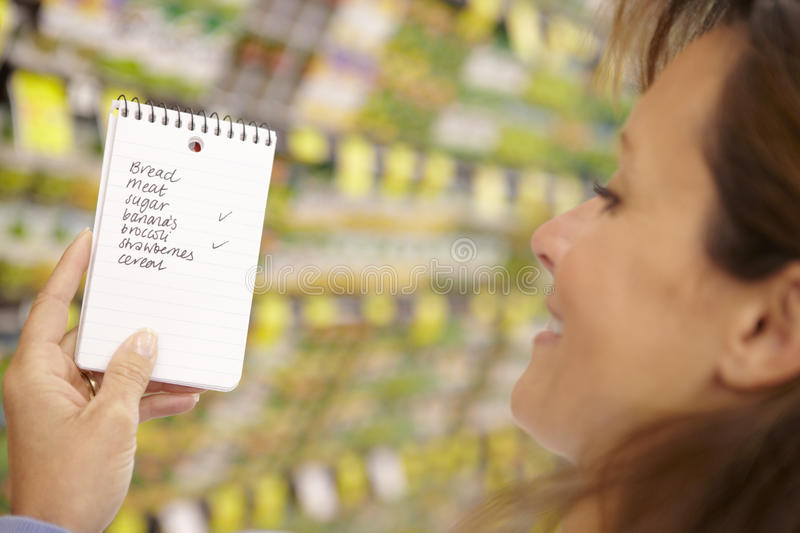 Bread
meat
sugar
banana's ✓
broccoli
strawberries ✓
cereal
dreamstime